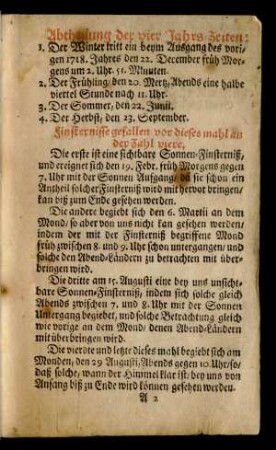 Abtheilung der vier Jahrs-Zeiten:
1. Der Winter tritt ein beym Ausgang des vori-
gen 1718. Jahres den 22. December früh Mor-
gens um 2. Uhr. 51. Minuten.
2. Der Frühling/ den 20. Mertz, Abends eine halbe
viertel Stunde nach 11. Uhr.
3. Der Sommer, den 22. Junii.
4. Der Herbst, den 23. September.
Finsternisse gefallen vor dieses mahl an
der Zahl viere,
Die erste ist eine sichtbare Sonnen-Finsterniß,
und ereignet sich den 19. Febr. früh Morgens gegen
7. Uhr mit der Sonnen Aufgang/ da sie schon ein
Antheil solcher Finsterniß wird mit hervor bringen/
kan biß zum Ende gesehen werden.
Die andere begiebt sich den 6. Martii an dem
Mond/ so aber von uns nicht kan gesehen werden/
indem der mit der Finsterniß begriffene Mond
früh zwischen 8. und 9. Uhr schon untergangen/ und
solche den Abend-Ländern zu betrachten mit über-
bringen wird.
Die dritte am 15. Augusti eine bey uns unsicht-
bare Sonnen-Finsterniß, indem sich solche gleich
Abends zwischen 7. und 8. Uhr mit der Sonnen
Untergang begiebet, und solche Betrachtung gleich
wie vorige an dem Mond/ denen Abend-Ländern
mit überbringen wird.
Die vierdte und letzte dieses mahl begiebt sich am
Monden/ den 29 Augusti/ Abends gegen 10. Uhr/ so/
daß solche/ wann der Himmel klar ist/ bey uns von
Anfang biß zu Ende wird können gesehen werden.
A 2